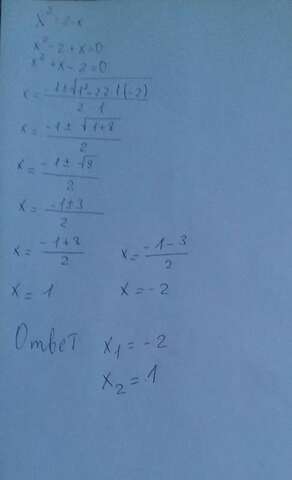 x² = 2-x
x²-2+x=0
x²+x-2=0
x = (-1±√(1²-2·2·1·(-2)))/(2·1)
x = (-1±√(1+8))/2
x = (-1±√9)/2
x = (-1±3)/2
x = (-1+3)/2 x = (-1-3)/2
x = 1 x = -2
Ответ x₁ = -2
x₂ = 1